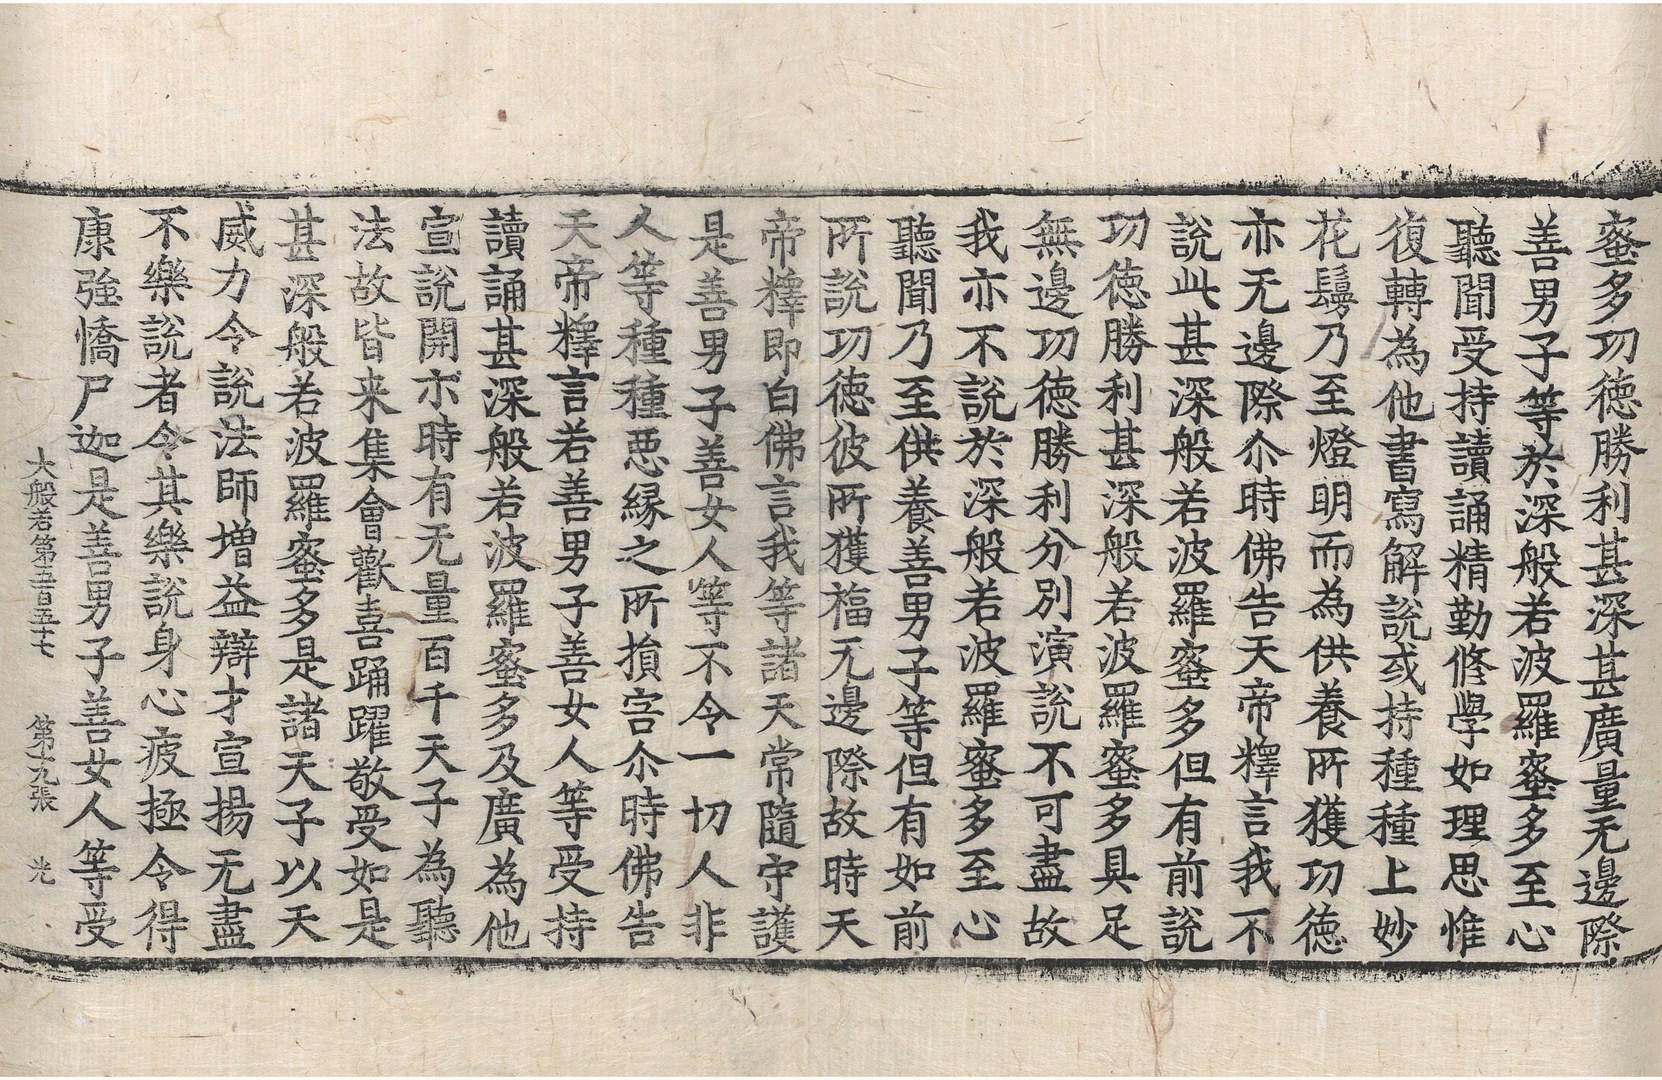 蜜多功德勝利甚深甚廣量无邊際
善男子等於深般若波羅蜜多至心
聽聞受持讀誦精勤修學如理思惟
復轉為他書寫解說或持種種上妙
花鬘乃至燈明而為供養所獲功德
亦无邊際尒時佛告天帝釋言我不
說此甚深般若波羅蜜多但有前說
功德勝利甚深般若波羅蜜多具足
無邊功德勝利分別演說不可盡故
我亦不說於深般若波羅蜜多至心
聽聞乃至供養善男子等但有如前
所說功德彼所獲福无邊際故時天
帝釋即白佛言我等諸天常隨守護
是善男子善女人等不令一切人非
人等種種惡緣之所損害尒時佛告
天帝釋言若善男子善女人等受持
讀誦甚深般若波羅蜜多及廣為他
宣說開示時有无量百千天子為聽
法故皆来集會歡喜踊躍敬受如是
甚深般若波羅蜜多是諸天子以天
威力令說法師增益辯才宣揚无盡
不樂說者令其樂說身心疲極令得
康強憍尸迦是善男子善女人等受
大般若第五百五十七 第十九張 光